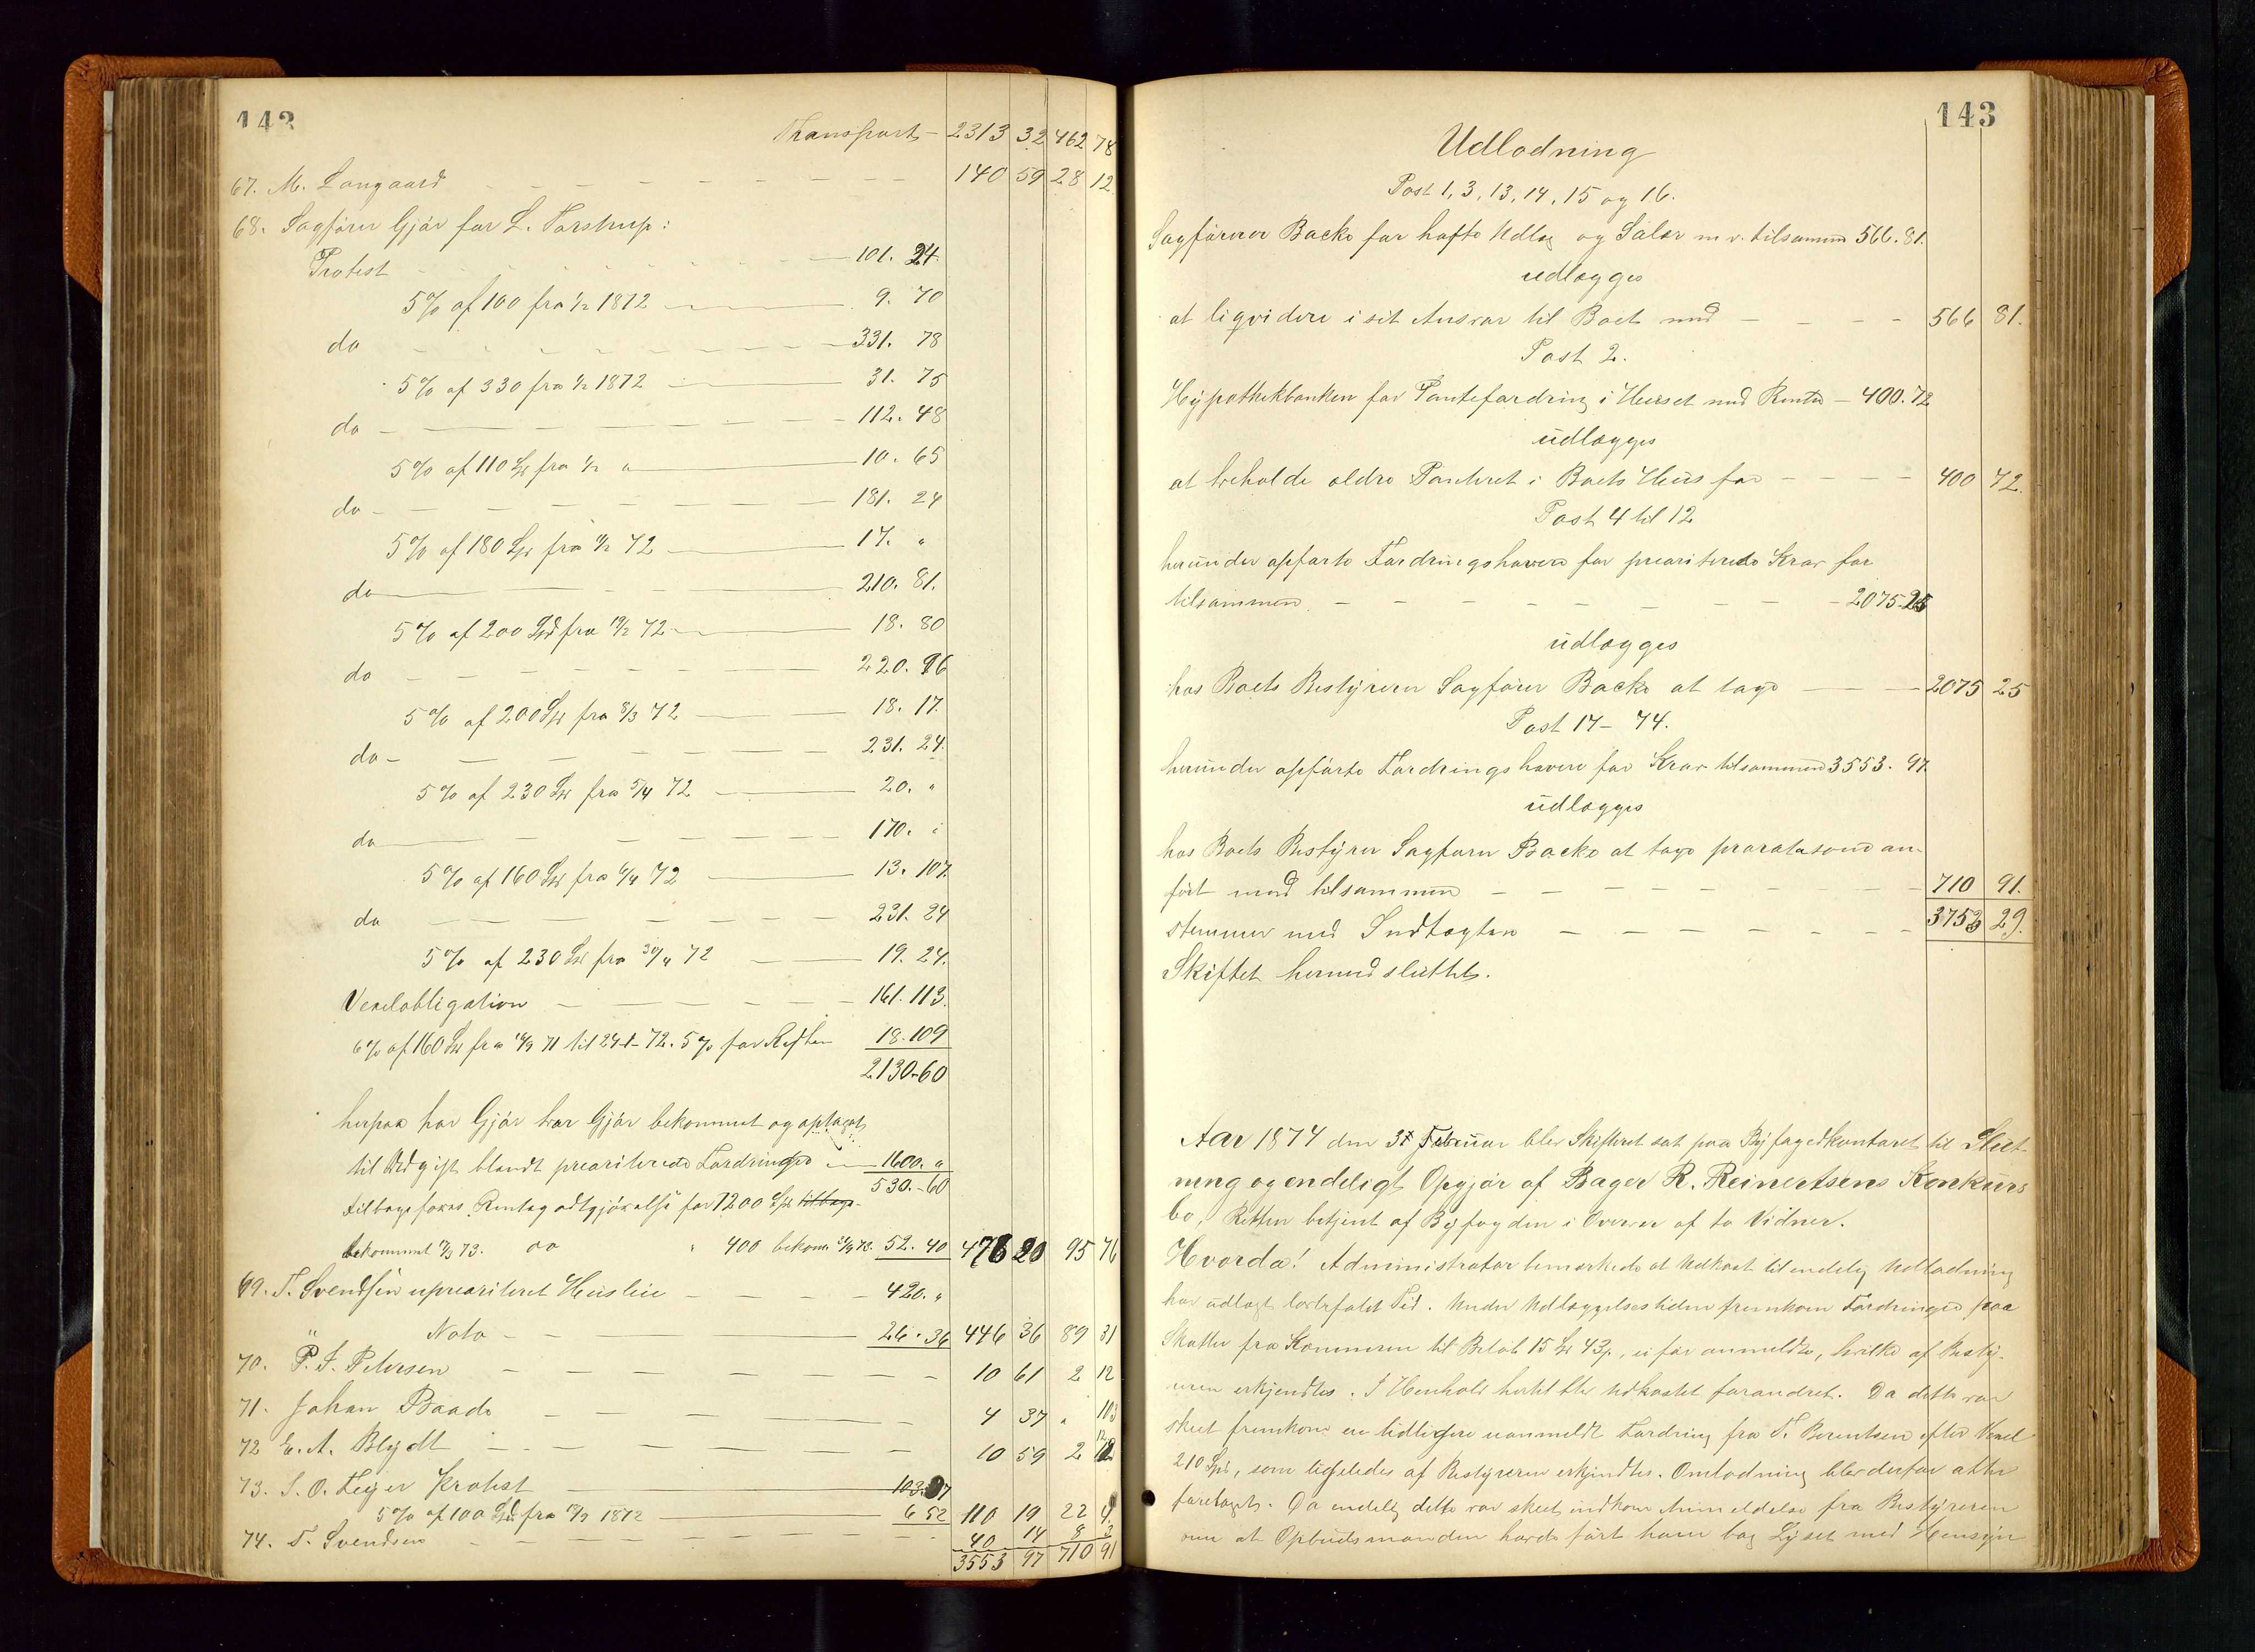 143
Transport - 2313 32 462 78
67. M. Langaard - - - - - - - - 140 59 28 12
68. Sagfører Gjør for L. Torstrup:
Protest - - - - - - - 101. 24
5% af 100 fra ½ 1872 9. 70
do - - - - - - - 331. 78
5% af 330 fra ½ 1872 31. 75
do - - - - - - 112. 48
5% af 110 Spd fra ½ " 10. 65
do - - - - - - 181. 24
5% af 180 Spd fra ½ 72 17. "
do - - - 210. 81.
5% af 200 Spd fra 19/2 72 18. 80
do - - - - - 220. 96
5% af 200 Spd fra 8/3 72 18. 17.
do - - - - - 231. 24.
5% af 230 Spd fra 5/4 72 20. "
do - - - - - 170. "
5% af 160 Spd fra 6/4 72 13. 107.
do - - - - - 231. 24
5% af 230 Spd fra 30/4 72 19. 24.
Vexelobligation - - - - 161. 113.
6% af 160 Spd fra 71 til 24-1-72. 5% for Resten 18. 109
2130-60
herpaa har Gjør bekommet og optaget
til Udgift blandt prioriterede Fordringer 1600. "
530.-60
tilbageføres Rentegodtgjørelse for 1200 Spd tilbage-
bekommet 73. do " 400 bekom. 73. 52. 40 478 20 95 76
69. T. Svendsen uprioriteret Huslie - - - - 420. "
" Nota - - 26. 36 446 36 89 31
70. P. S. Petersen - - - - - - - 10 61 2 12
71. Johan Baade - - - - - - 4 37 " 103
72 E. A. Blydt - - - - - - 10 59 2 12
73. S. O. Leyer Protest 103. 87
5% af 100 Spd fra 1872 6 52 110 19 22 4
74. T. Svendsen - - - - - - 40 14 8 3
3553 97 710 91
143
Udlodning
Post 1, 3, 13, 14, 15 og 16.
Sagfører Backe for hafte Udlæg og Salær m v. tilsammen 566. 81.
udlægges
at liqvidere i sit Ansvar til Boet med - - - - 566 81.
Post 2.
Hypothekbanken for Pantefordring i Huset med Renter - 400. 72
udlægges
at beholde ældre Panteret i Boets Huus for - - - - 400 72.
Post 4 til 12
herunder opførte Fordringshavere for prioriterede Krav for
tilsammen - - - - - - - - 2075-25
udlægges
hos Boets Bestyrer Sagfører Backe at tage - - - 2075 25
Post 17 - 74.
herunder opførte Fordringshavere for Krav tilsammen 3553. 97.
udlægges
hos Boets Bestyrer Sagfører Backe at tage prorata som an-
ført med tilsammen - - - - - - - - 710 91.
stemmer med Indtægten - - - - - - - 3753 29.
Skiftet hermed sluttet.
Aar 1874 den 3t Februar blev Skifteret sat paa Byfogedkontoret til Slut-
ning og endeligt Opgjør af Bager R. Reinertsens Konkurs
bo, Retten betjent af Byfogden i Overvær af to Vidner.
Hvorda! Administrator bemærkede at Udkast til endelig Udlodning
har udlagt lovbefalet Tid. Under Udlæggelsestiden fremkom Fordringer paa
Skatter fra Kommunen til Beløb 15 Spd 43 ß, ei før anmeldte, hvilke af Besty-
reren erkjendtes. I Henhold hertil blev Udkastet forandret. Da dette var
skeet fremkom en tidligere uanmeldt Fordring fra T. Berentsen efter Vexel
210 Spd, som ligeledes af Bestyreren erkjendtes. Omlodning blev derfor atter
foretaget. Da endelig dette var skeet indkom Anmeldelse fra Bestyreren
om at Opbudsmanden havde ført ham bag Lyset med Hensyn